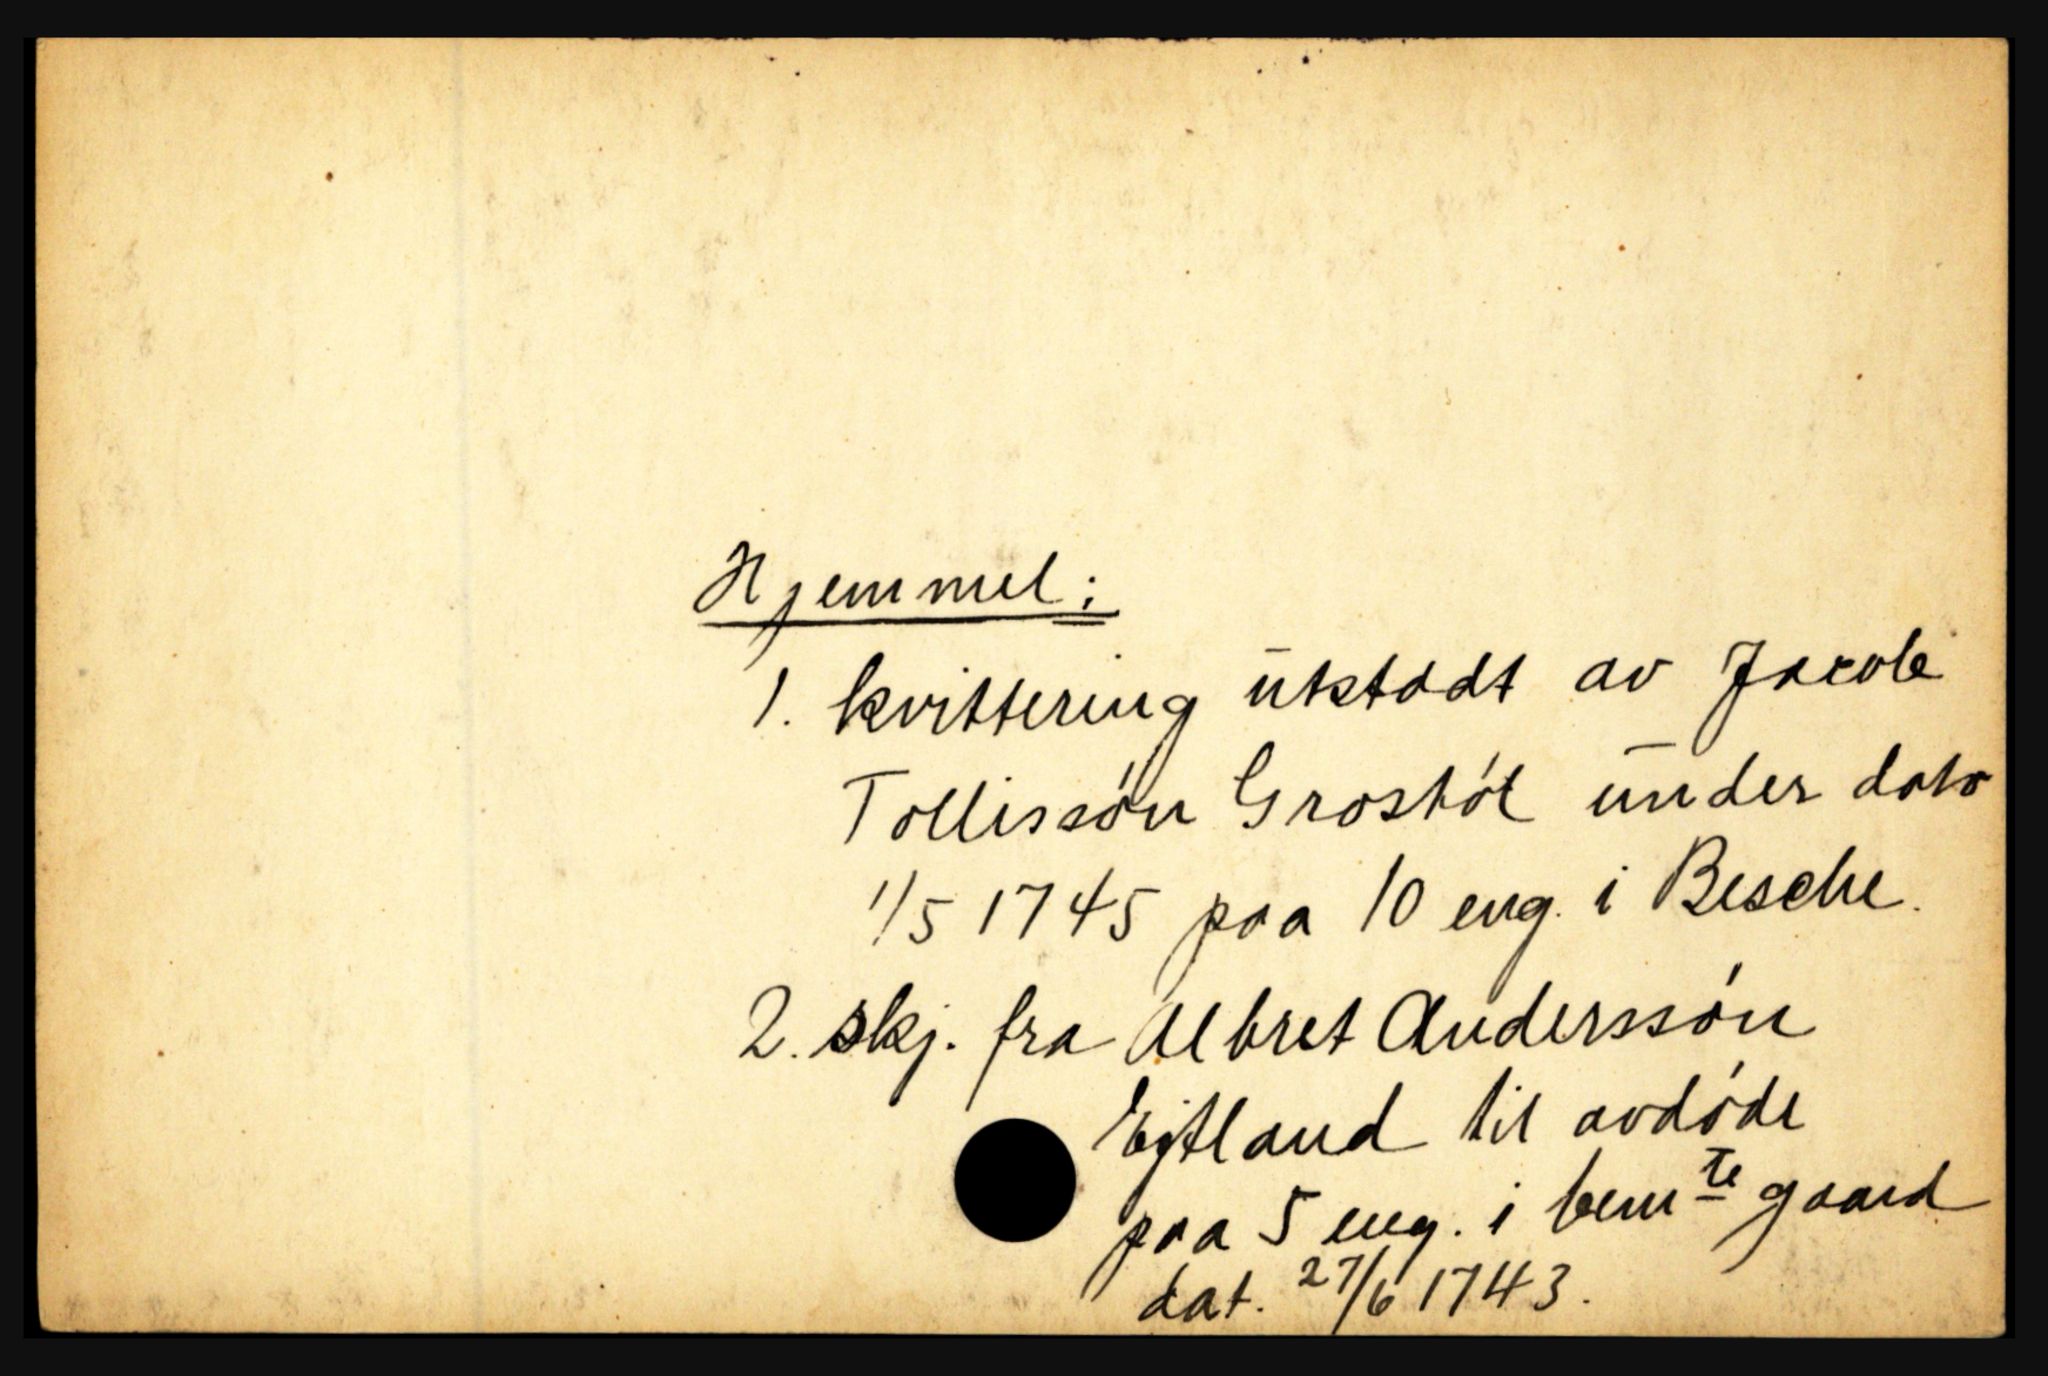 Hjemmel:
1. kvittering utstædt av Jacob
Tollissøn Grostøl under dato
1/5 1745 paa 10 eng. i Besche.
2. skj. fra Albret Anderssøn
Eftland til avdøde
paa 5 eng. i bem te gaard
dat. 27/6 1743.